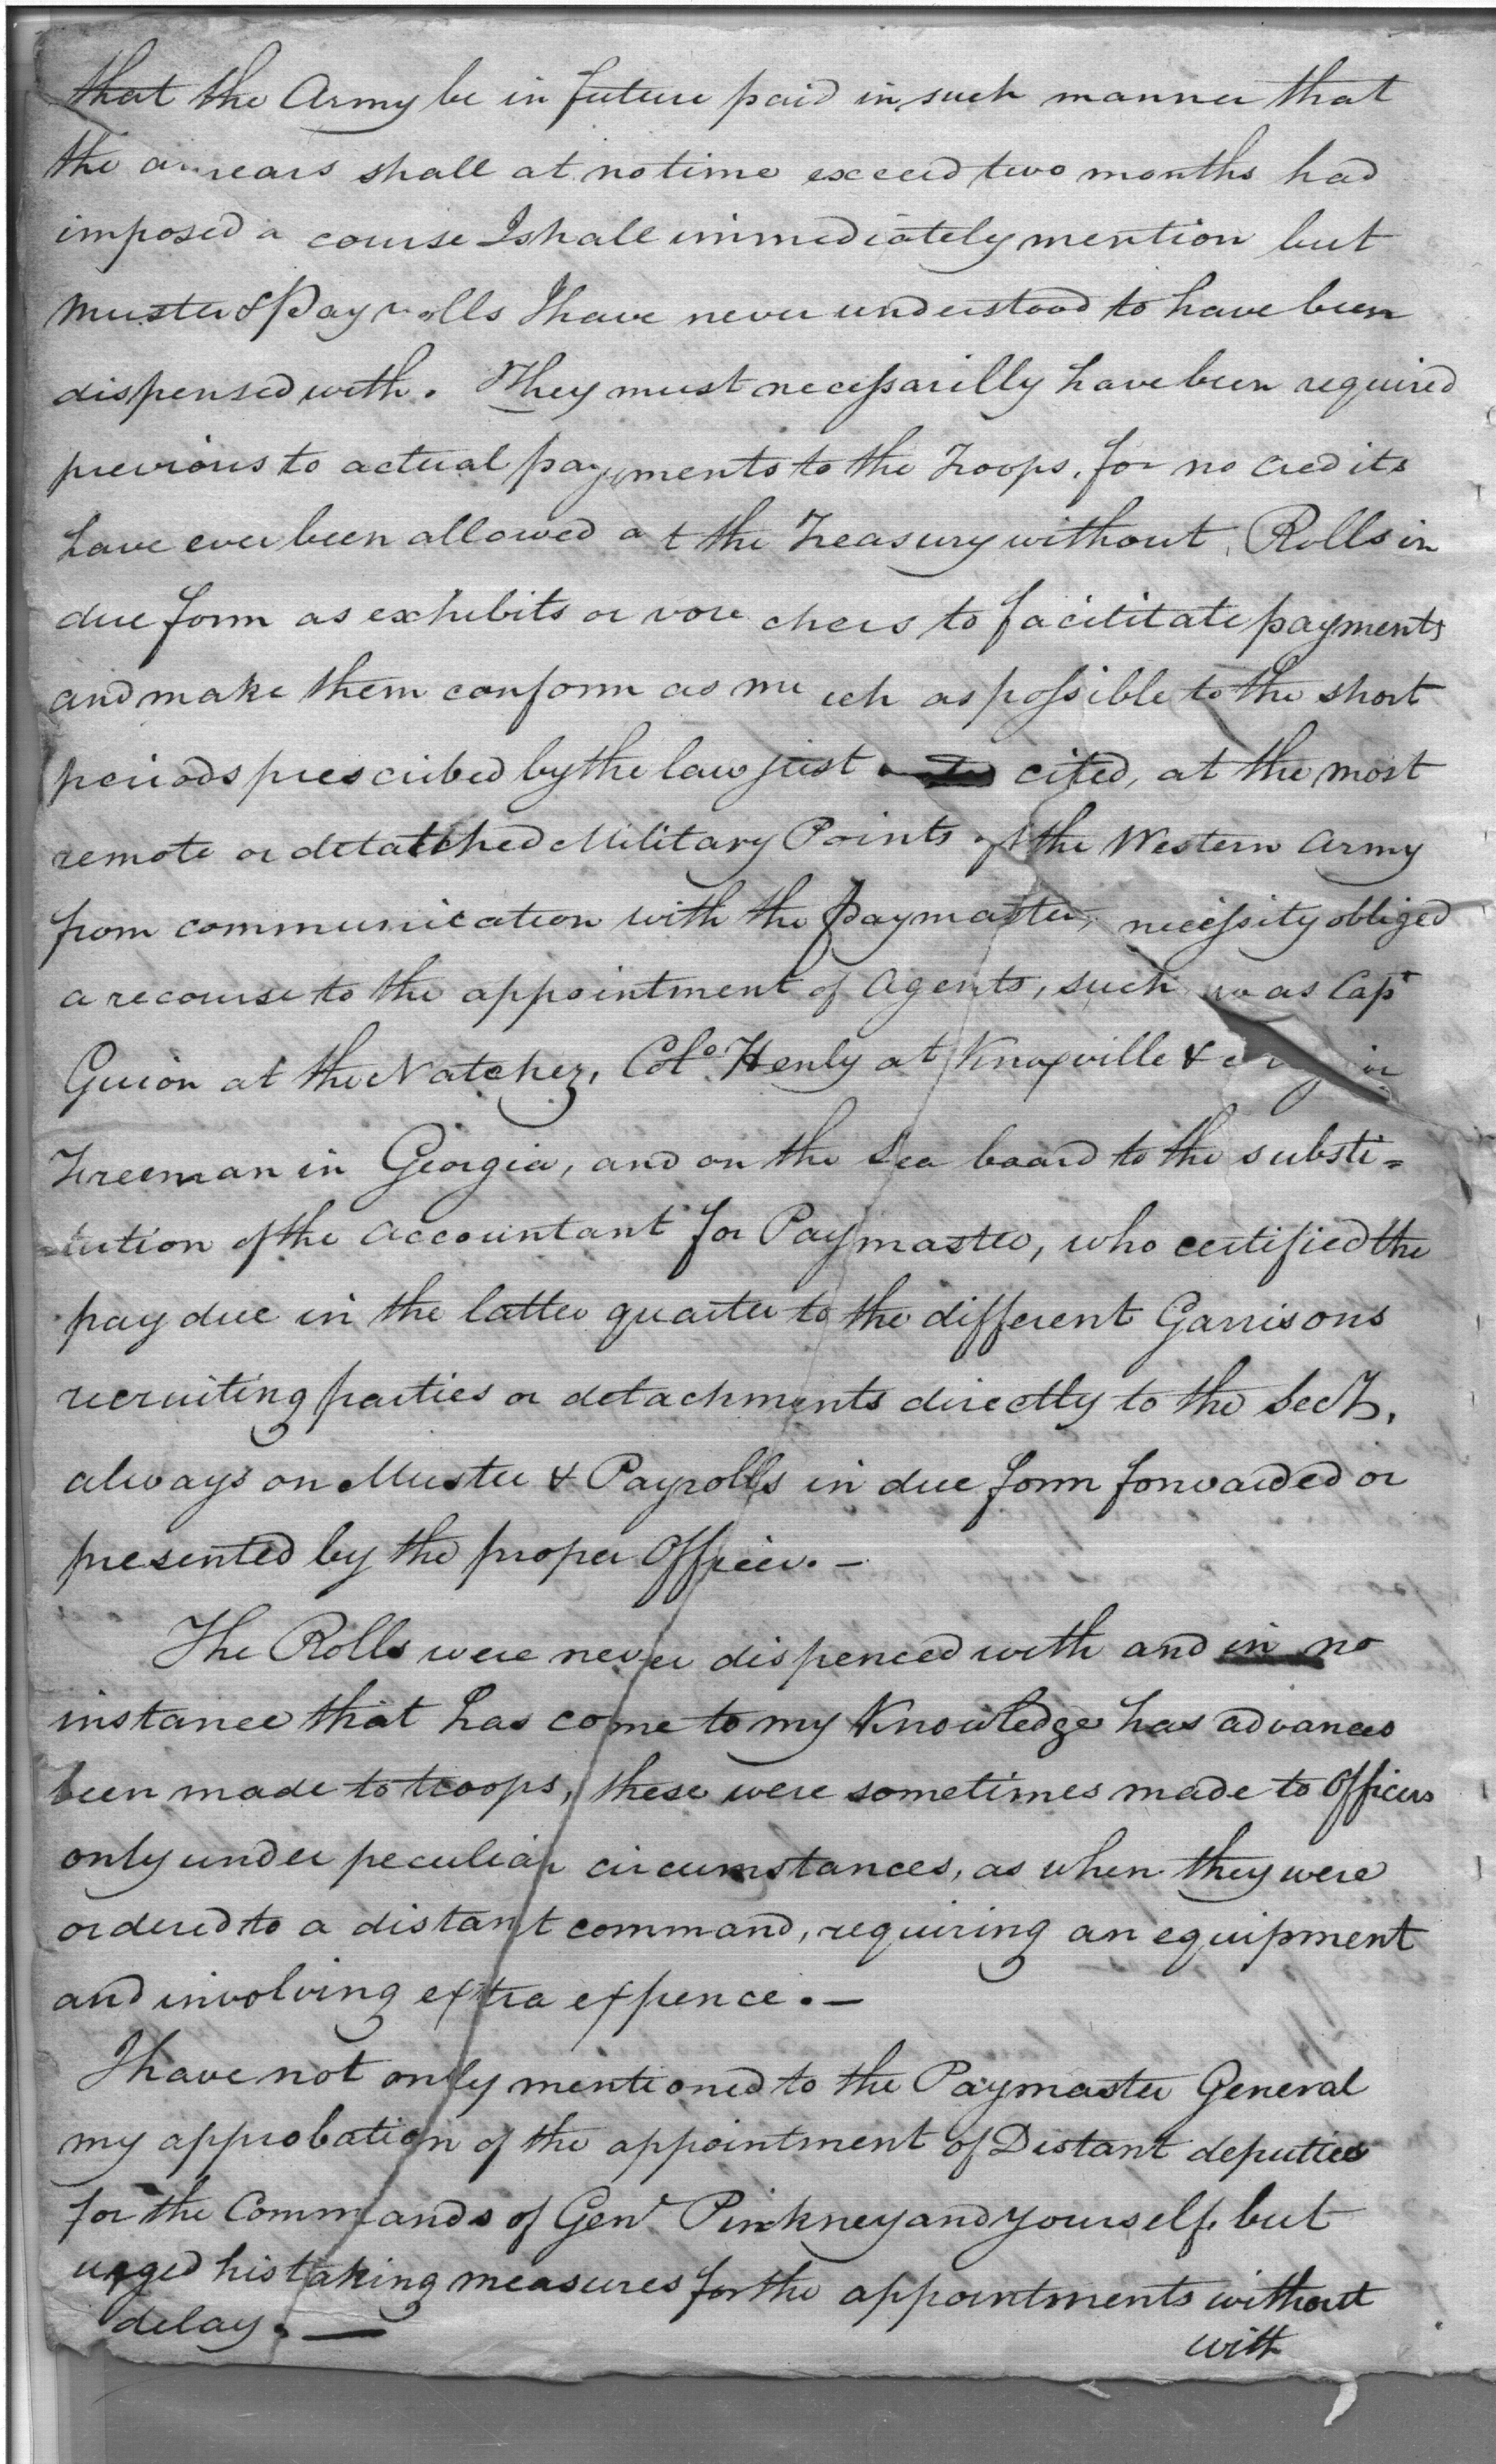 that the Army be in future paid in such manner that
the arrears shall at no time exceed two months had
imposed a course I shall immediately mention but
Muster & Pay rolls I have never understood to have been
dispensed with. They must necessarilly have been required
previous to actual payments to the Troops, for no credits
have ever been allowed at the Treasury without Rolls in
due form as exhibits or vouchers to facilitate payments
and make them conform as much as possible to the short
periods prescribed by the law just cited, at the most
remote or detatched Military Points of the Western Army
from communication with the Paymaster, necessity obliged
a recourse to the appointment of Agents, such was Capt
Guion at the Natchez, Colo. Henly at Knoxville &
Freeman in Georgia, and on the Sea board to the substi=
=tution of the accountant for Paymaster, who certified the
pay due in the latter quarter to the different Garrisons
recruiting parties or detachments directly to the Secy.
always on Muster & Payrolls in due form forwarded or
presented by the proper Officer. —
The Rolls were never dispenced with and in no
instance that has come to my Knowledge has advances
been made to troops, these were sometimes made to Officers
only under peculiar circumstances, as when they were
ordered to a distant command, requiring an equipment
and involving extra expence. —
I have not only mentioned to the Paymaster General
my approbation of the appointment of Distant deputies
for the Commands of Genl. Pinkney and yourself, but
urged his taking measures for the appointments without
delay. —
with